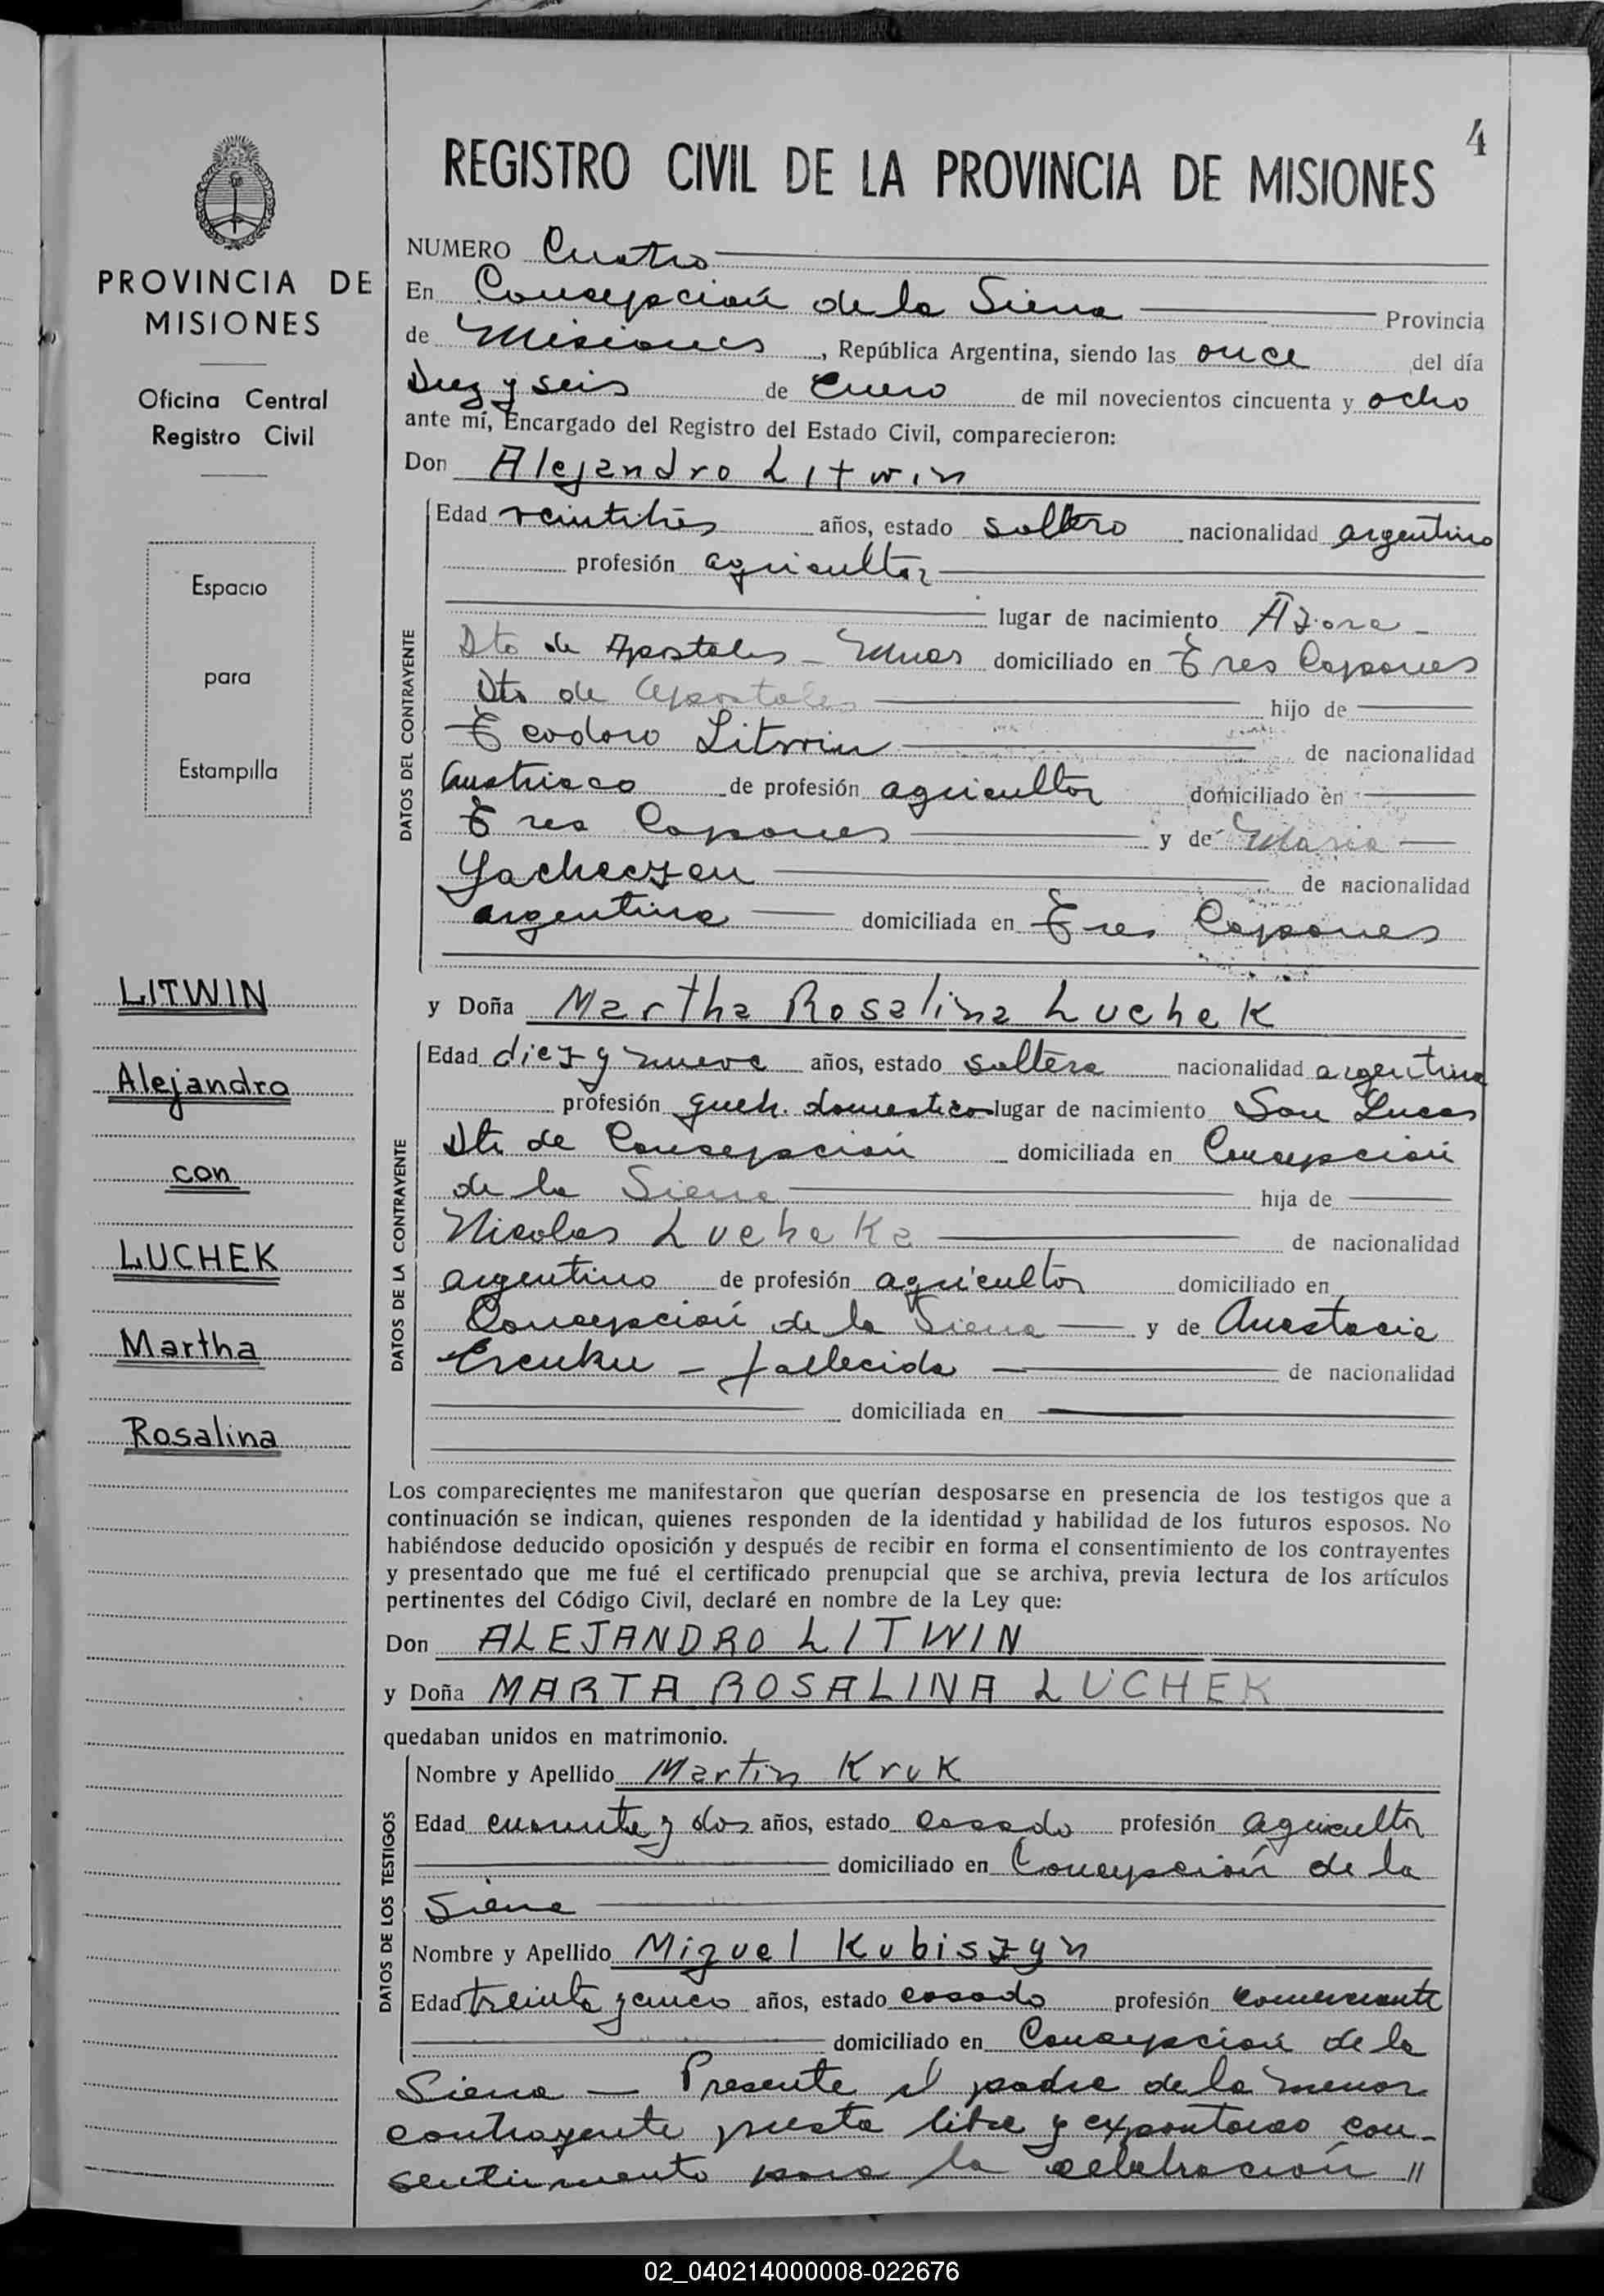 4
REGISTRO CIVIL DE LA PROVINCIA DE MISIONES
PROVINCIA DE
MISIONES
Oficina Central
Registro Civil
Espacio
para
Estampilla
LITWIN
Alejandro
con
LUCHEK
Martha
Rosalina
NUMERO Cuatro
En Concepción de la Sierra Provincia
de Misiones, República Argentina, siendo las once del día
Diez y seis de Enero de mil novecientos cincuenta y ocho
ante mí, Encargado del Registro del Estado Civil, comparecieron:
Don Alejandro Litwin
DATOS DEL CONTRAYENTE
Edad veintitrés años, estado soltero nacionalidad argentino
profesión agricultor
lugar de nacimiento Azara -
Dto de Apóstoles - Mnes domiciliado en Tres Capones
Dto de Apostoles hijo de
Teodoro Litwin de nacionalidad
Austriaco de profesión agricultor domiciliado en
Tres Capones y de Maria
Yacheczen de nacionalidad
argentina domiciliada en Tres Capones
y Doña Martha Rosalina Luchek
DATOS DE LA CONTRAYENTE
Edad diez y nueve años, estado soltera nacionalidad argentina
profesión queh. domesticos lugar de nacimiento San Lucas
Dto de Concepción domiciliada en Concepción
de la Sierra hija de
Nicolas Lucheka de nacionalidad
argentino de profesión agricultor domiciliado en
Concepción de la Sierra y de Anastacia
- fallecida de nacionalidad
domiciliada en
Los comparecientes me manifestaron que querían desposarse en presencia de los testigos que a
continuación se indican, quienes responden de la identidad y habilidad de los futuros esposos. No
habiéndose deducido oposición y después de recibir en forma el consentimiento de los contrayentes
y presentado que me fué el certificado prenupcial que se archiva, previa lectura de los artículos
pertinentes del Código Civil, declaré en nombre de la Ley que:
Don ALEJANDRO LITWIN
y Doña MARTA ROSALINA LUCHEK
quedaban unidos en matrimonio.
DATOS DE LOS TESTIGOS
Nombre y Apellido Martin Kruk
Edad cuarenta y dos años, estado casado profesión agricultor
domiciliado en Concepción de la
Sierra
Nombre y Apellido Miguel Kubiszyn
Edad treinta y cinco años, estado casado profesión comerciante
domiciliado en Concepción de la
Sierra — Presente el padre de la menor
contrayente presta libre y expontaneo con-
sentimiento para la celebración //
02_040214000008-022676